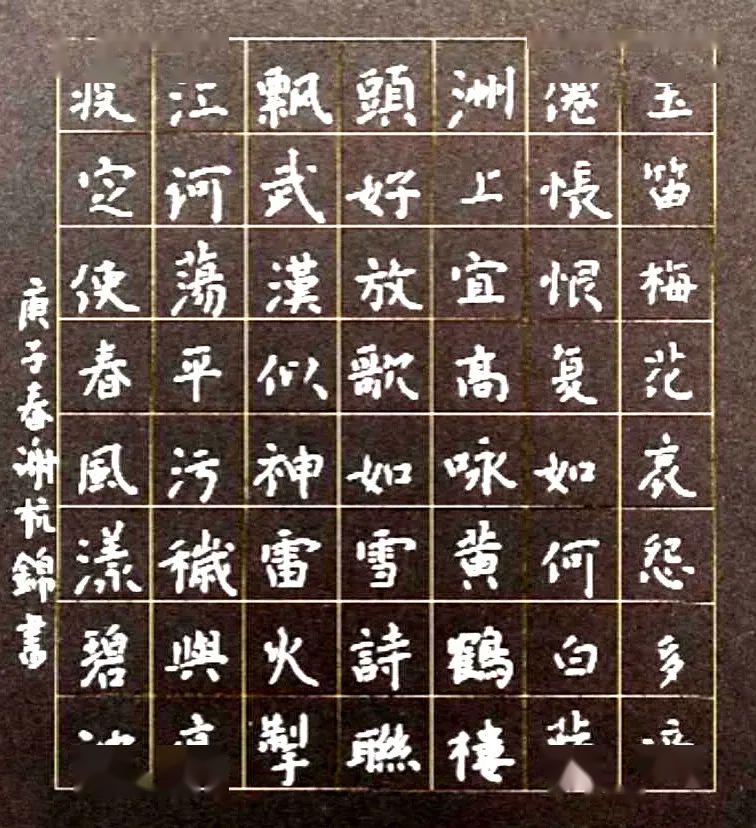 玉笛梅花哀怨多
倦悵恨复如何白
洲上宜高咏黄鶴樓
頭好放歌如雪詩聯
飘武漢似神雷火掣
江河蕩平污穢與
疫定使春風漾碧
庚子春谢杭錦書